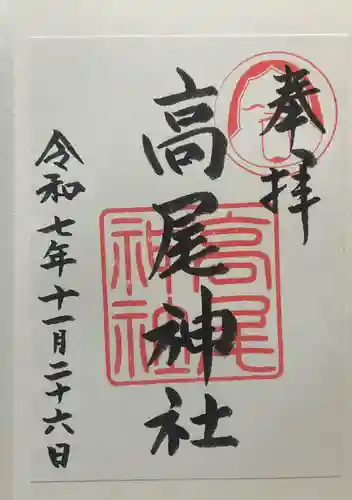 奉拝
高尾神社
高尾
神社
令和七年十一月二十六日